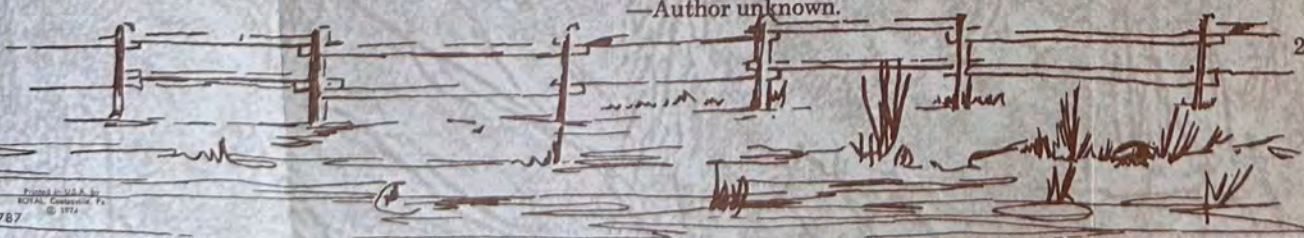 —Author unknown.
2
Printed in U.S.A. by
ROYAL, Coatesville, Pa
© 1974
787